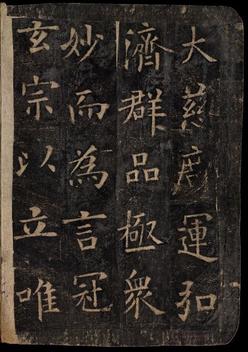 大慈運弘
濟群品極眾
妙而為言冠
玄宗以立唯